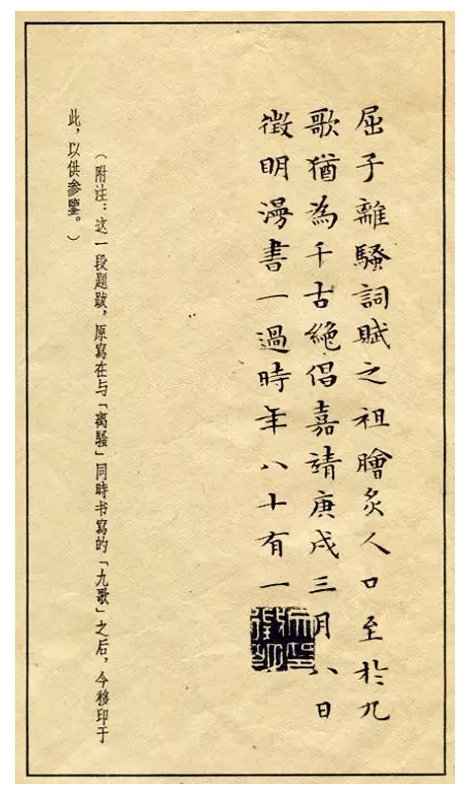 屈子離騷詞賦之祖膾炙人口至於九
歌猶為千古絶倡嘉靖庚戌三月八日
徵明漫書一過時年八十有一
（附注：这一段題跋，原寫在与「离騷」同時书寫的「九歌」之后，今移印于
此，以供参鑒。）